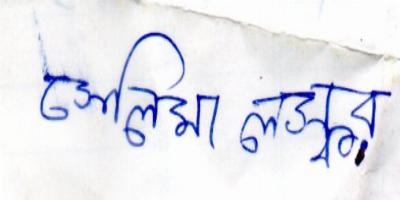 সেলিমা লস্কর